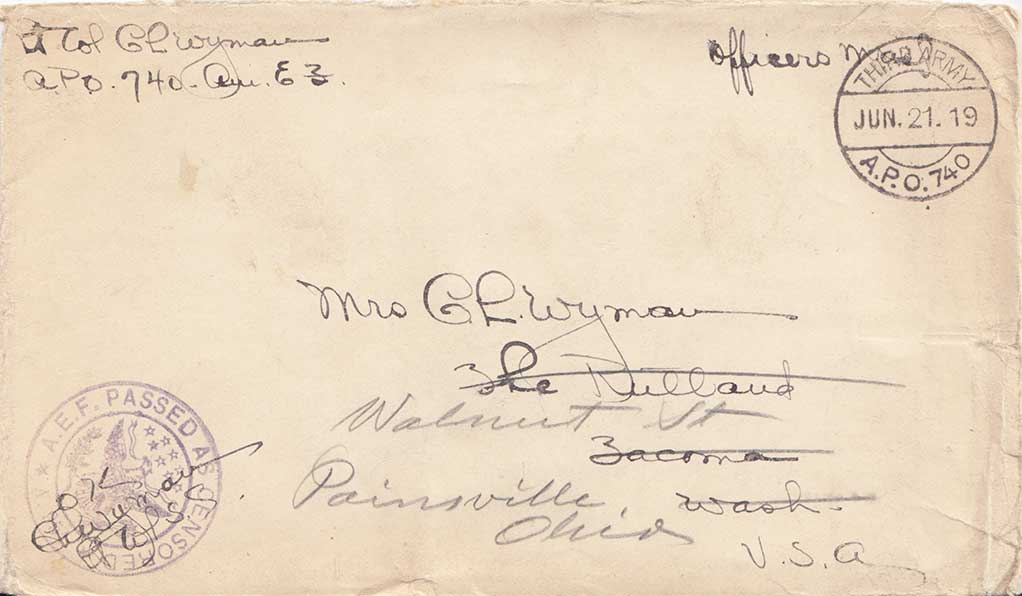 Lt Col C L Wyman
A.P.O. 740. Am. E 3.
Officers Mail
THIRD ARMY
JUN. 21. 19
A.P.O. 740
Mrs C. L. Wyman
The Rutland
Walnut St
Tacoma
Painsville
Wash.
Ohio
U.S.A
A.E.F. PASSED AS CENSORED
O K
C L Wyman
U.S.